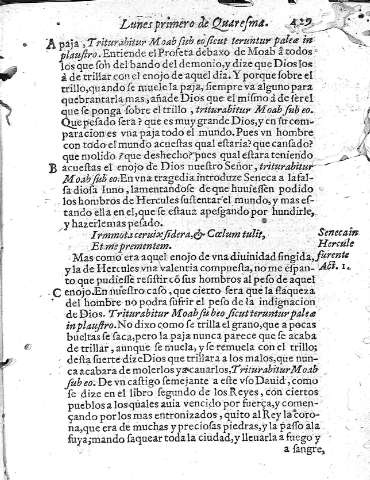 Lunes primero de Quaresma. 429
A paja, Triturabitur Moab sub eo sicut teruntur paleæ in
plaustro. Entiende el Profeta debaxo de Moab â todos
los que son del bando del demonio, y dize que Dios los
à de trillar con el enojo de aquel dia. Y porque sobre el
trillo, quando se muele la paja, siempre va alguno para
quebrantarla mas; añade Dios que el mismo à de ser el
que se ponga sobre el trillo, triturabitur Moab sub eo.
Que pesado sera? que es muy grande Dios, y en su com
paracion es vna paja todo el mundo. Pues vn hombre
con todo el mundo acuestas qual estaria? que cansado?
que molido? que deshecho? pues qual estara teniendo
B acuestas el enojo de Dios nuestro Señor, triturabitur
Moab sub eo. En vna tragedia introduze Seneca a la fal-
sa diosa Iuno, lamentandose de que huuiessen podido
los hombros de Hercules sustentar el mundo, y mas es-
tando ella en el, que se estaua apesgando por hundirle,
y hazerle mas pesado.
Immota ceruix sidera, & Cœlum tulit,
Et me prementem.
Senecain
Hercule
furente
Act. 1.
Mas como era aquel enojo de vna diuinidad fingida,
y la de Hercules vna valentia compuesta, no me espan-
to que pudiesse resistir cō sus hombros al peso de aquel
C enojo. En nuestro caso, que cierto sera que la flaqueza
del hombre no podra sufrir el peso de la indignacion
de Dios. Triturabitur Moab sub eo sicut teruntur paleæ
in plaustro. No dixo como se trilla el grano, que a pocas
bueltas se saca, pero la paja nunca parece que se acaba
de trillar, aunque se muela, y se remuela con el trillo;
desta suerte dize Dios que trillara a los malos, que nun-
ca acabara de molerlos y acauarlos, Triturabitur Moab
sub eo. De vn castigo semejante a este vso Dauid, como
se dize en el libro segundo de los Reyes, con ciertos
pueblos a los quales auia vencido por fuerça, y comen-
çando por los mas entronizados, quito al Rey la coro-
na, que era de muchas y preciosas piedras, y la passo a la
suya; mando saquear toda la ciudad, y lleuarla a fuego y
a sangre,